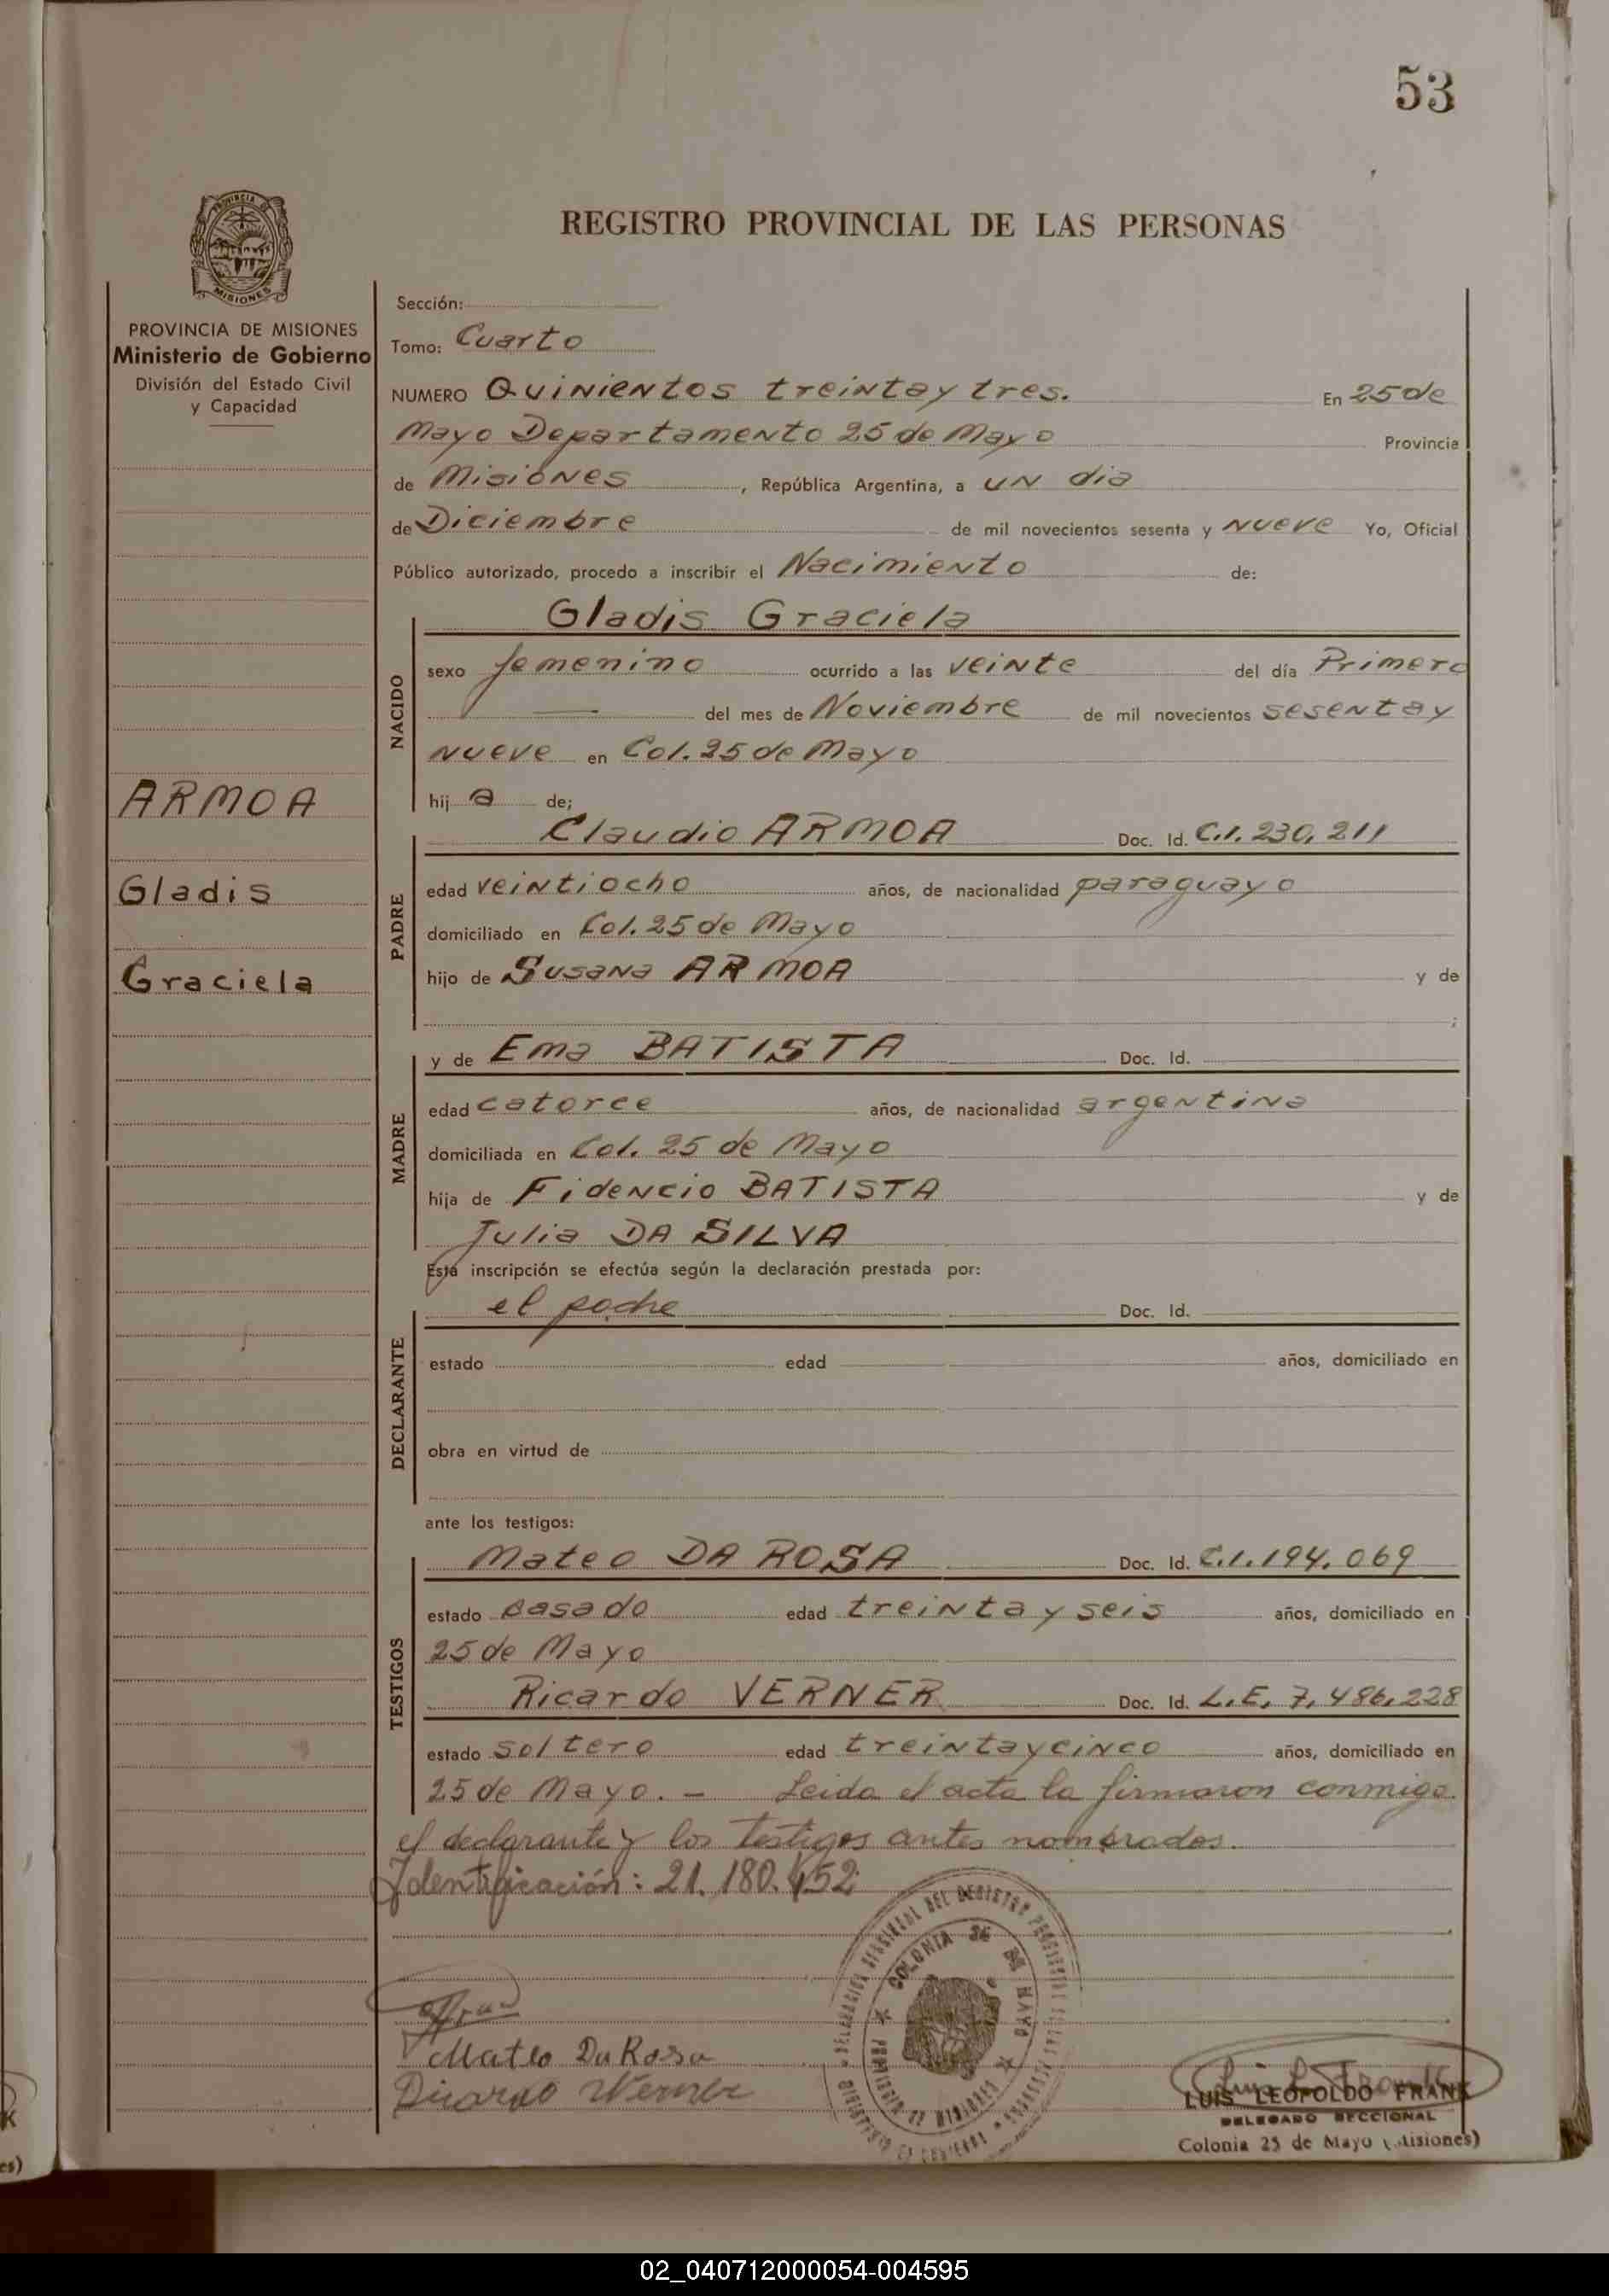 53
PROVINCIA DE
MISIONES
REGISTRO PROVINCIAL DE LAS PERSONAS
PROVINCIA DE MISIONES
Ministerio de Gobierno
División del Estado Civil
y Capacidad
ARMOA
Gladis
Graciela
Sección:
Tomo: Cuarto
NUMERO Quinientos treinta y tres. En 25 de
Mayo Departamento 25 de Mayo Provincia
de Misiones, República Argentina, a un dia
de Diciembre de mil novecientos sesenta y nueve Yo, Oficial
Público autorizado, procedo a inscribir el Nacimiento de:
NACIDO
Gladis Graciela
sexo femenino ocurrido a las veinte del día Primero
— del mes de Noviembre de mil novecientos sesenta y
nueve en Col. 25 de Mayo
hij a de;
PADRE
Claudio ARMOA Doc. Id. C.I. 230,211
edad veintiocho años, de nacionalidad paraguayo
domiciliado en Col. 25 de Mayo
hijo de Susana ARMOA y de
;
MADRE
y de Ema BATISTA Doc. Id.
edad catorce años, de nacionalidad argentina
domiciliada en Col. 25 de Mayo
hija de Fidencio BATISTA y de
Julia DA SILVA
Esta inscripción se efectúa según la declaración prestada por:
DECLARANTE
el padre Doc. Id.
estado edad años, domiciliado en
obra en virtud de
ante los testigos:
TESTIGOS
Mateo DA ROSA Doc. Id. C.I. 194.069
estado casado edad treinta y seis años, domiciliado en
25 de Mayo
Ricardo VERNER Doc. Id. L.E. 7,486,228
estado soltero edad treinta y cinco años, domiciliado en
25 de Mayo. – Leida el acta la firmaron conmigo
el declarante y los testigos antes nombrados.
Identificación: 21.180.452
COLONIA 25 DE MAYO
PROVINCIA DE MISIONES
Mateo Da Rosa
Ricardo Werner
LUIS LEOPOLDO FRANK
DELEGADO SECCIONAL
Colonia 25 de Mayo (Misiones)
02_040712000054-004595